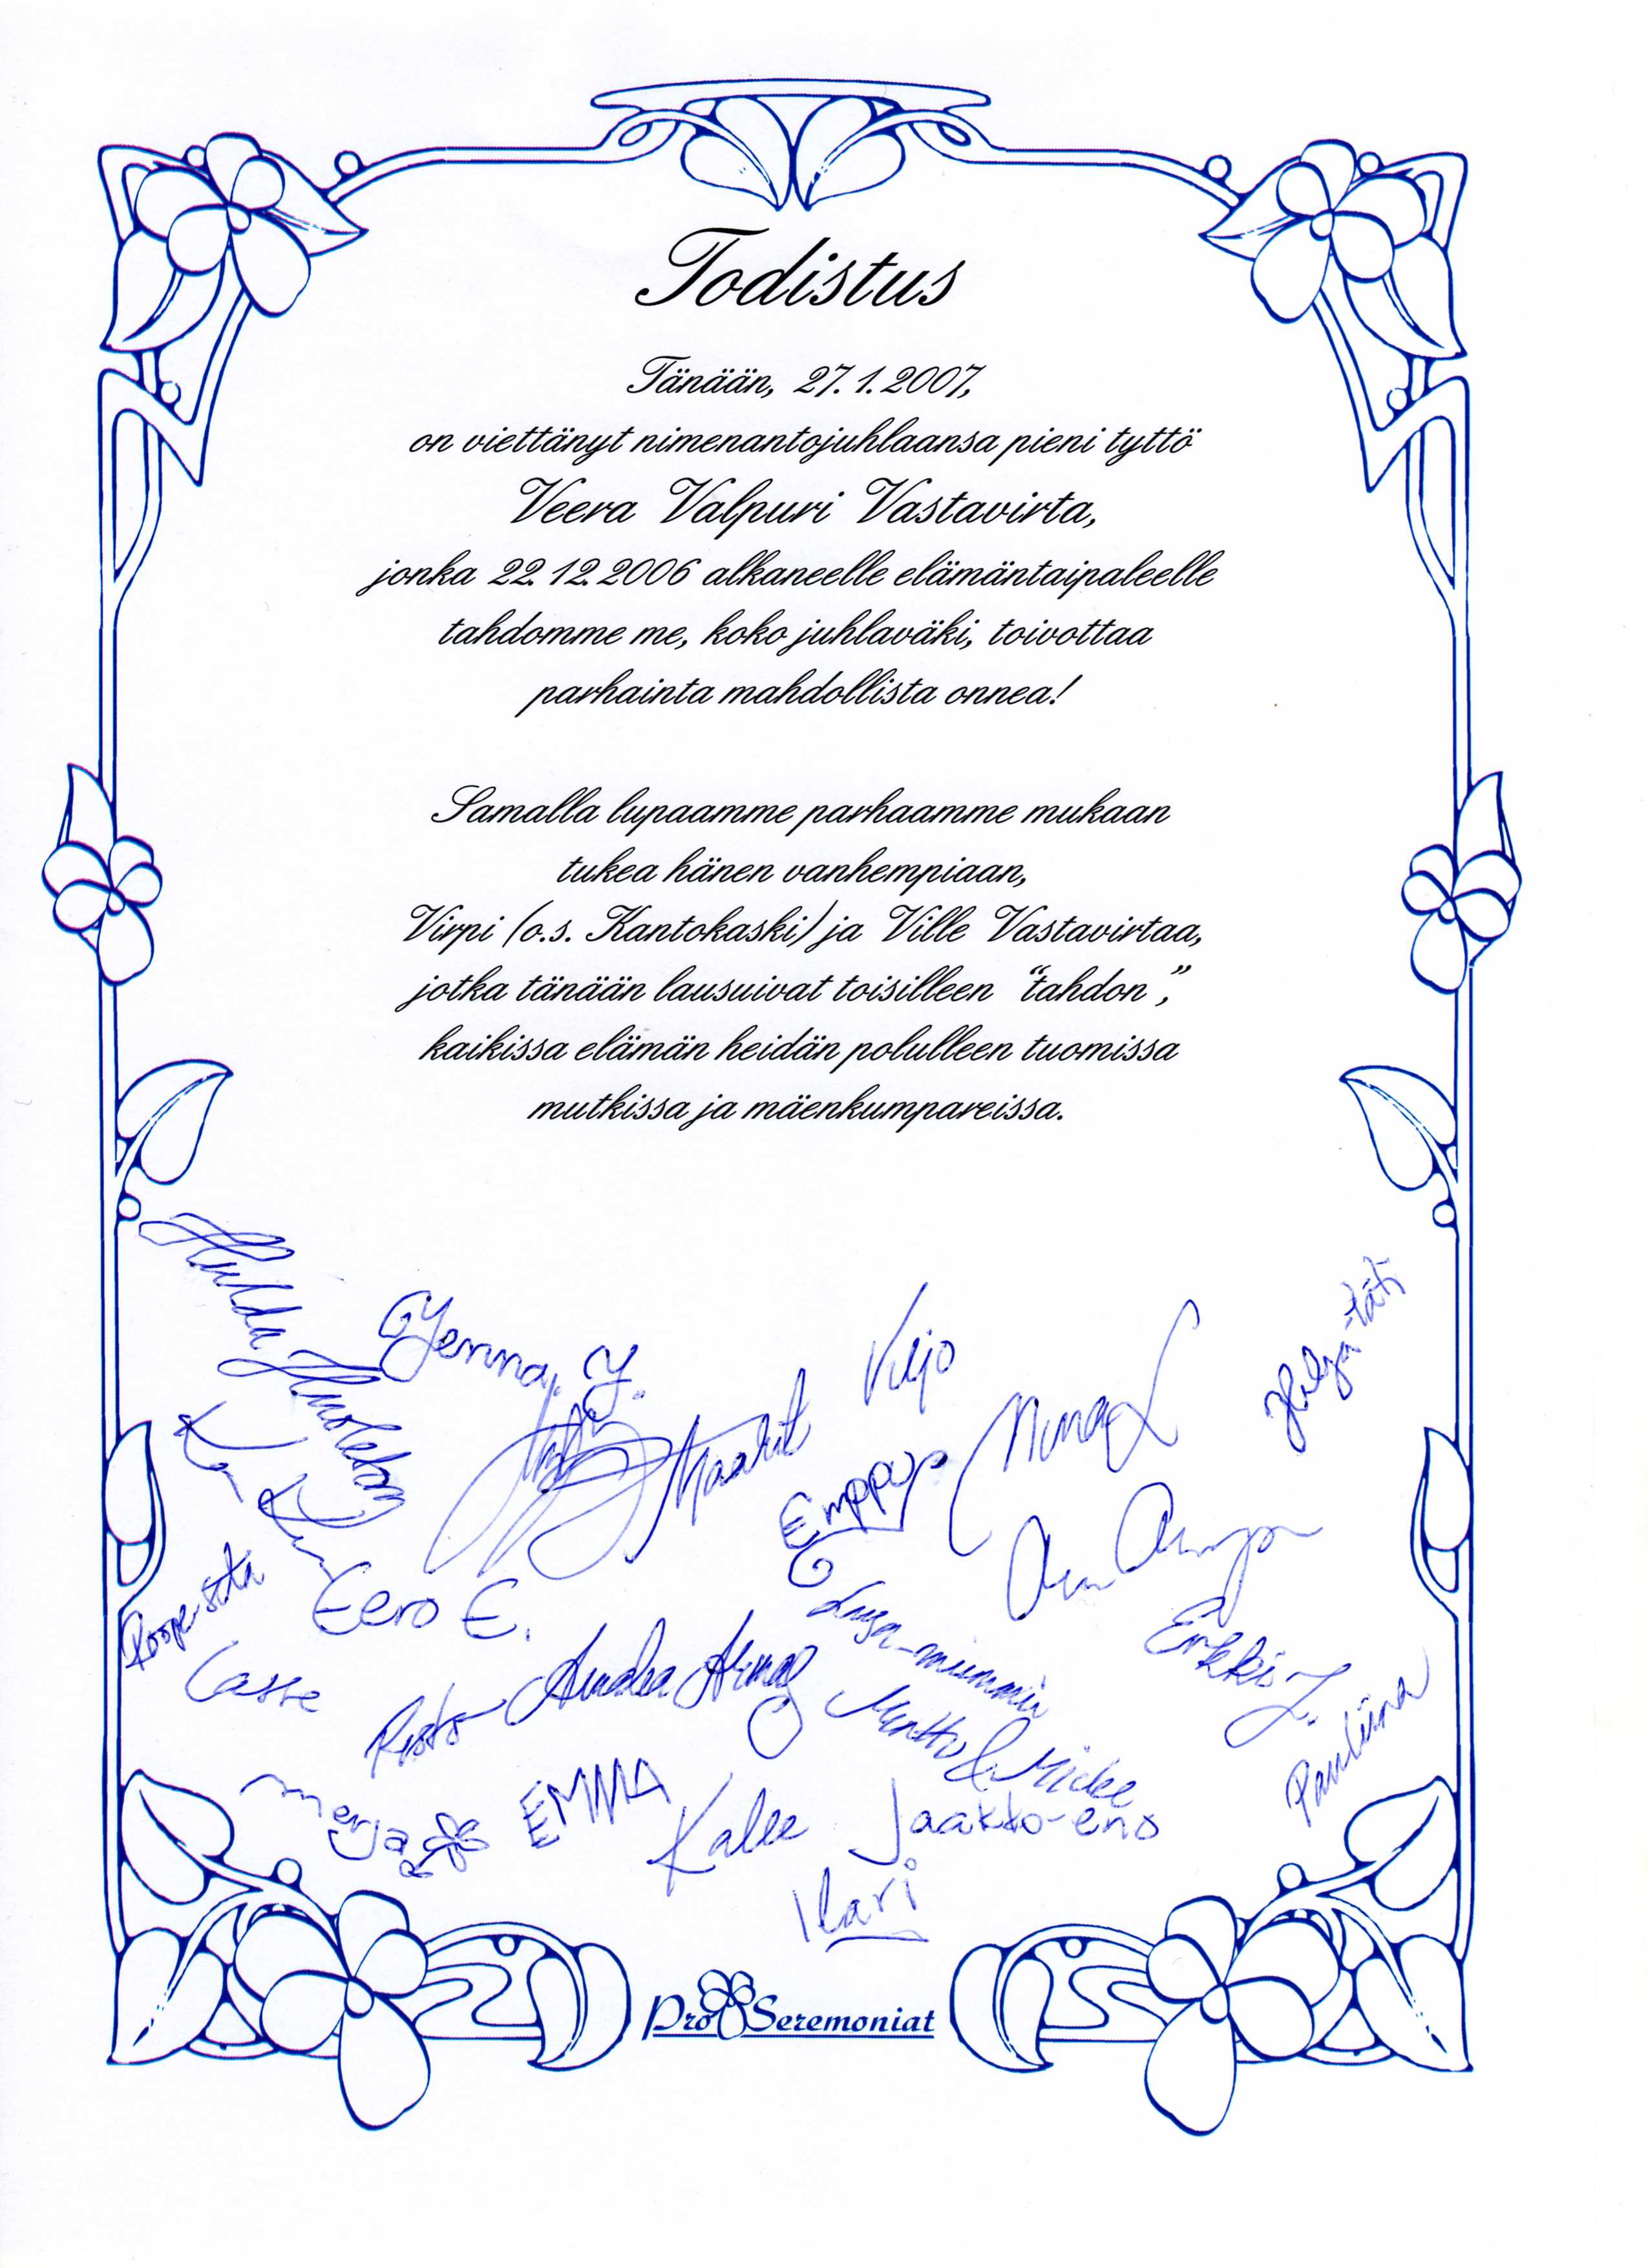 Todistus
Tänään, 27.1.2007,
on viettänyt nimenantojuhlaansa pieni tyttö
Veera Valpuri Vastavirta,
jonka 22.12.2006 alkaneelle elämäntaipaleelle
tahdomme me, koko juhlaväki, toivottaa
parhainta mahdollista onnea!
Samalla lupaamme parhaamme mukaan
tukea hänen vanhempiaan,
Virpi (o.s. Kantokaski) ja Ville Vastavirtaa,
jotka tänään lausuivat toisilleen "tahdon",
kaikissa elämän heidän polulleen tuomissa
mutkissa ja mäenkumpareissa.
Hulda
Jenna. J.
Veijo
Hilja-täti
Maarit
Nina L
Emppu
Roope-setä
Eero E.
Lasse
Risto
Amalia
Erkki J.
Minttu & Micke
Pauliina
Merja
EMMA
Kalle
Jaakko-eno
Ilari
Pro Seremoniat